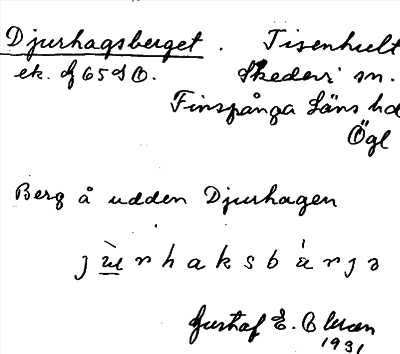 Djurhagsberget. Tisenhult
ek. bl 65 d O. Skedevi sn.
Finspånga läns hd
Ögl
Berg å udden Djurhagen
j ùu r h a k s b á r j ə
Gustaf E. Olsson
1931